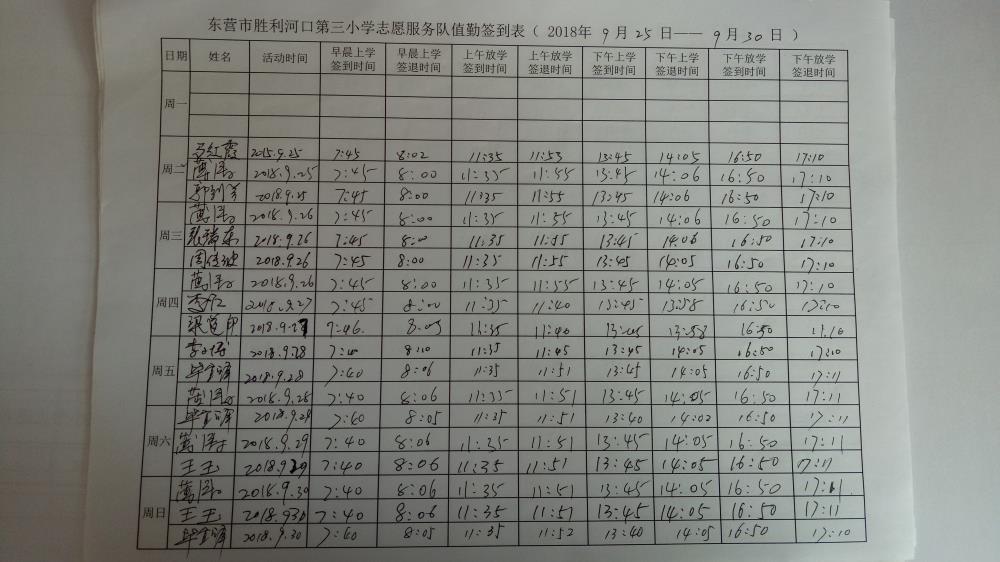 东营市胜利河口第三小学志愿服务队值勤签到表（ 2018年 9 月 25 日—— 9 月 30 日 ）
日期 姓名 活动时间 早晨上学签到时间 早晨上学签退时间 上午放学签到时间 上午放学签退时间 下午上学签到时间 下午上学签退时间 下午放学签到时间 下午放学签退时间
周一
2015.9.25 7:45 8:02 11:35 11:53 13:45 14:05 16:50 17:10
周二 2018.9.25 7:45 8:00 11:35 11:55 13:45 14:06 16:50 17:10
2018.9.25 7:45 8:00 11:35 11:55 13:45 14:06 16:50 17:10
2018.9.26 7:45 8:00 11:35 11:55 13:45 14:06 16:50 17:10
周三 张瑞东 2018.9.26 7:45 8:00 11:35 11:55 13:45 14:06 16:50 17:10
2018.9.26 7:45 8:00 11:35 11:55 13:45 14:05 16:50 17:10
2018.9.26 7:45 8:00 11:35 11:55 13:45 14:05 16:50 17:10
周四 2018.9.27 7:45 8:00 11:35 11:40 13:45 13:58 16:50 17:10
2018.9.27 7:46 11:35 11:40 13:58 16:50
2018.9.28 8:10 11:35 11:45 13:45 14:05 16:50 17:10
周五 2018.9.28 7:40 8:06 11:35 11:51 13:45 14:05 16:50 17:11
2018.9.28 7:40 8:06 11:35 11:51 13:45 14:05 16:50 17:11
2018.9.29 7:40 8:05 11:35 11:51 13:40 14:02 16:50 17:11
周六 2018.9.29 7:40 8:06 11:35 11:51 13:45 14:05 16:50 17:11
王玉 2018.9.29 7:40 8:06 11:35 11:51 13:45 14:05 16:50 17:11
2018.9.30 7:40 8:06 11:35 11:51 13:45 14:05 16:50 17:11
周日 王玉 2018.930 7:40 8:06 11:35 11:51 13:45 14:05 16:50 17:11
2018.9.30 7:40 8:05 11:35 11:52 13:40 14:05 16:50 17:10